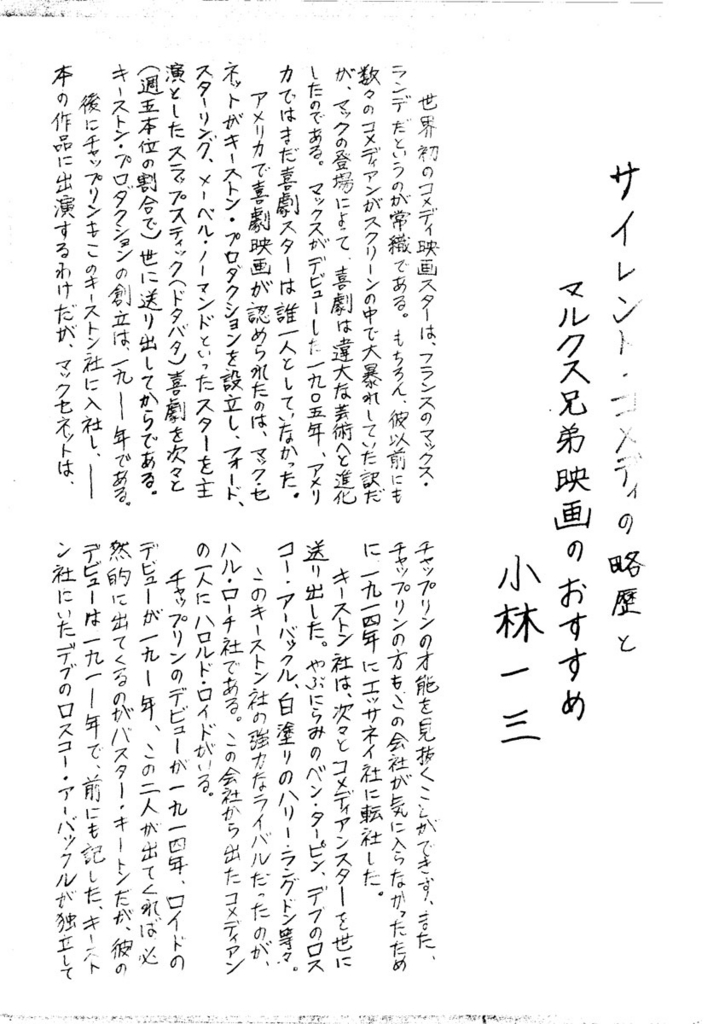 サイレント・コメディの略歴と
マルクス兄弟映画のおすすめ
小林一三
世界初のコメディ映画スターは、フランスのマックス・
ランデだというのが常識である。もちろん、彼以前にも
数々のコメディアンがスクリーンの中で大暴れしていた訳だ
が、マックの登場によって、喜劇は違大な芸術へと進化
したのである。マックスがデビューした一九〇五年、アメリ
カではまだ喜劇スターは誰一人としていなかった。
アメリカで喜劇映画が認められたのは、マック・セ
ネットがキーストン・プロダクションを設立し、フォード、
スターリング、メーベル・ノーマンドといったスターを主
演としたスラップスティック(ドタバタ)喜劇を次々と
(週五本位の割合で)世に送り出してからである。
キーストン・プロダクションの創立は、一九一一年である。
後にチャップリンもこのキーストン社に入社し、一一
本の作品に出演するわけだが、マックセネットは、
チャップリンの才能を見抜くことができず、また、
チャップリンの方もこの会社が気に入らなかったため
に、一九一四年にエッサネイ社に転社した。
キーストン社は、次々とコメディアンスターを世に
送り出した。やぶにらみのベン・ターピン、デブのロス
コー・アーバックル、白塗りのハリー・ラングドン等々。
このキーストン社の強力なライバルだったのが、
ハル・ローチ社である。この会社から出たコメディアン
の一人にハロルド・ロイドがいる。
チャップリンのデビューが一九一四年、ロイドの
デビューが一九一一年、この二人が出てくれば必
然的に出てくるのがバスター・キートンだが、彼の
デビューは一九一一年で、前にも記した、キースト
ン社にいたデブのロスコー・アーバックルが独立して